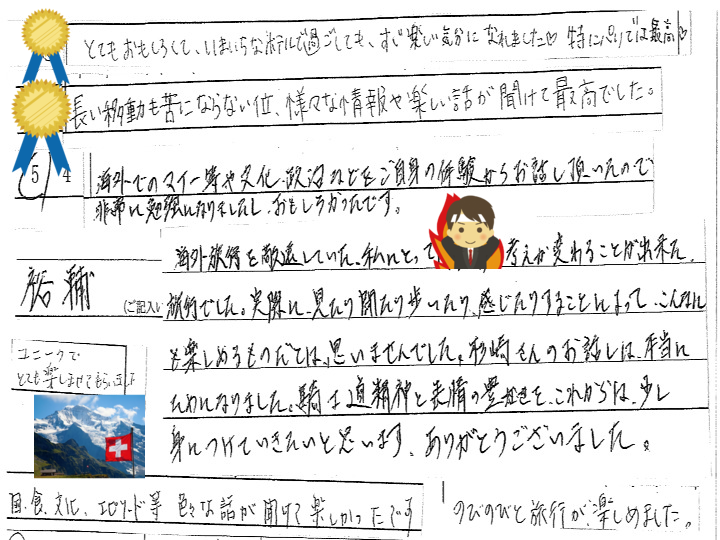 とてもおもしろくて、いまいちなホテルで過ごしても、すごく楽しい気分になれました♡ 特にバリでは最高♡
長い移動も苦にならない位、様々な情報や楽しい話が聞けて最高でした。
5 4
海外でのマナー等や文化、政治などをご自身の体験からお話し頂いたので
非常に勉強になりましたし、おもしろかったです。
海外旅行を敬遠していた、私にとって 考えが変わることが出来た、
祐輔
(ご記入い
旅行でした。実際に、見たり聞たり歩いたり、感じたりすることによって、こんなに
も楽しめるものだとは、思いませんでした。杉崎さんのお話しは、本当に
ユニークで
とても楽しませてもらいました
ためになりました。騎士道精神と表情の豊かさを、これからは、少し
身につけていきたいと思います。ありがとうございました。
国、食、文化、エピソード等 色々な話が聞けて楽しかったです
のびのびと旅行が楽しめました。